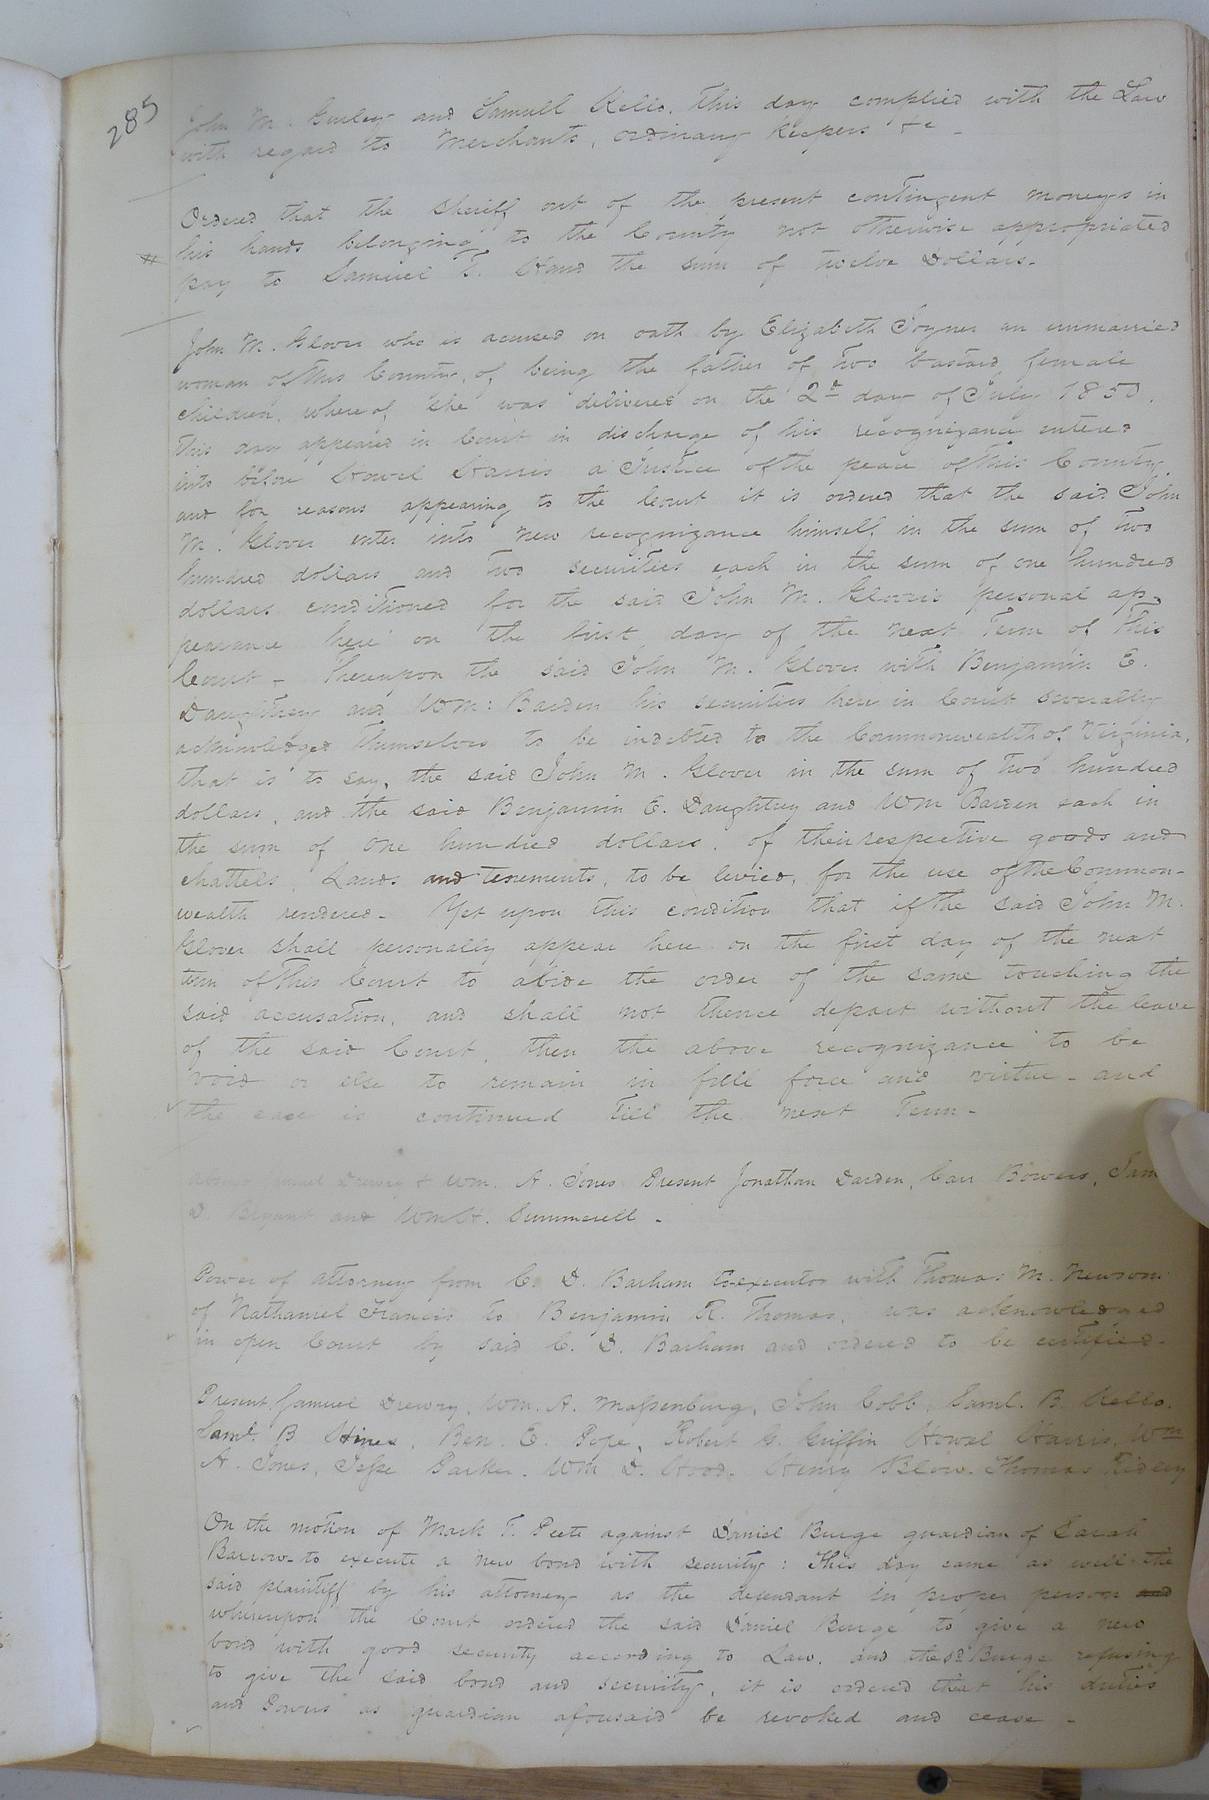 285
John M. Gurley and Samuel Kello. This day complied with the Law
with regard to Merchants, ordinary Keepers &c -
Ordered that the Sheriff out of the present contingent moneys in
his hands belonging to the County not otherwise appropriated
pay to Samuel T. Hand the sum of twelve Dollars.
John M. Glover who is accused on oath by Elizabeth Joyner an unmarried
woman of this County, of being the father of two bastard female
children, whereof she was delivered on the 2d day of July 1850.
This day appeared in Court in discharge of his recognizance entered
into before Howel Harris a Justice of the peace of this County,
and for reasons appearing to the Court it is ordered that the said John
M. Glover enter into new recognizance himself in the sum of two
hundred dollars and two securities each in the sum of one hundred
dollars conditioned for the said John M. Glover's personal ap-
pearance here on the first day of the next Term of this
Court - Thereupon the said John M. Glover with Benjamin E.
Daughtrey and Wm: Barden his securities here in Court severally
acknowledged themselves to be indebted to the Commonwealth of Virginia,
that is to say, the said John M. Glover in the sum of two hundred
dollars, and the said Benjamin E. Daughtrey and Wm Barden each in
the sum of one hundred dollars, of their respective goods and
chattels, Lands and tenements, to be levied, for the use of the Common-
wealth rendered - Yet upon this condition that if the said John M.
Glover shall personally appear here on the first day of the next
term of this Court to abide the order of the same touching the
said accusation, and shall not thence depart without the leave
of the said Court, then the above recognizance to be
void or else to remain in full force and virtue - and
the case is continued till the next Term -
Absent Samuel Drewry & Wm. A. Jones Present Jonathan Darden, Carr Bowers, Sam
D. Bryant and Wm H. Summerell -
Power of attorney from C. D. Barham Co-executor with Thomas M. Newsom
of Nathaniel Francis to Benjamin R. Thomas, was acknowledged
in open Court by said C. D. Barham and ordered to be certified -
Present, Samuel Drewry, Wm. A. Massenburg, John Cobb, Saml. B. Kello,
Saml. B Hines, Ben. E. Pope, Robert G. Griffin Howel Harris, Wm
A. Jones, Jesse Parker, Wm D. Hood, Henry Blow, Thomas Ridley
On the motion of Mark T. Peete against Daniel Burge guardian of Sarah
Barrow - to execute a new bond with security: This day came as well the
said plaintiff by his attorney as the defendant in proper person and
whereupon the Court ordered the said Daniel Burge to give a new
bond with good security according to Law, and the sd Burge refusing
to give the said bond and security, it is ordered that his duties
and Powers as guardian aforesaid be revoked and cease -